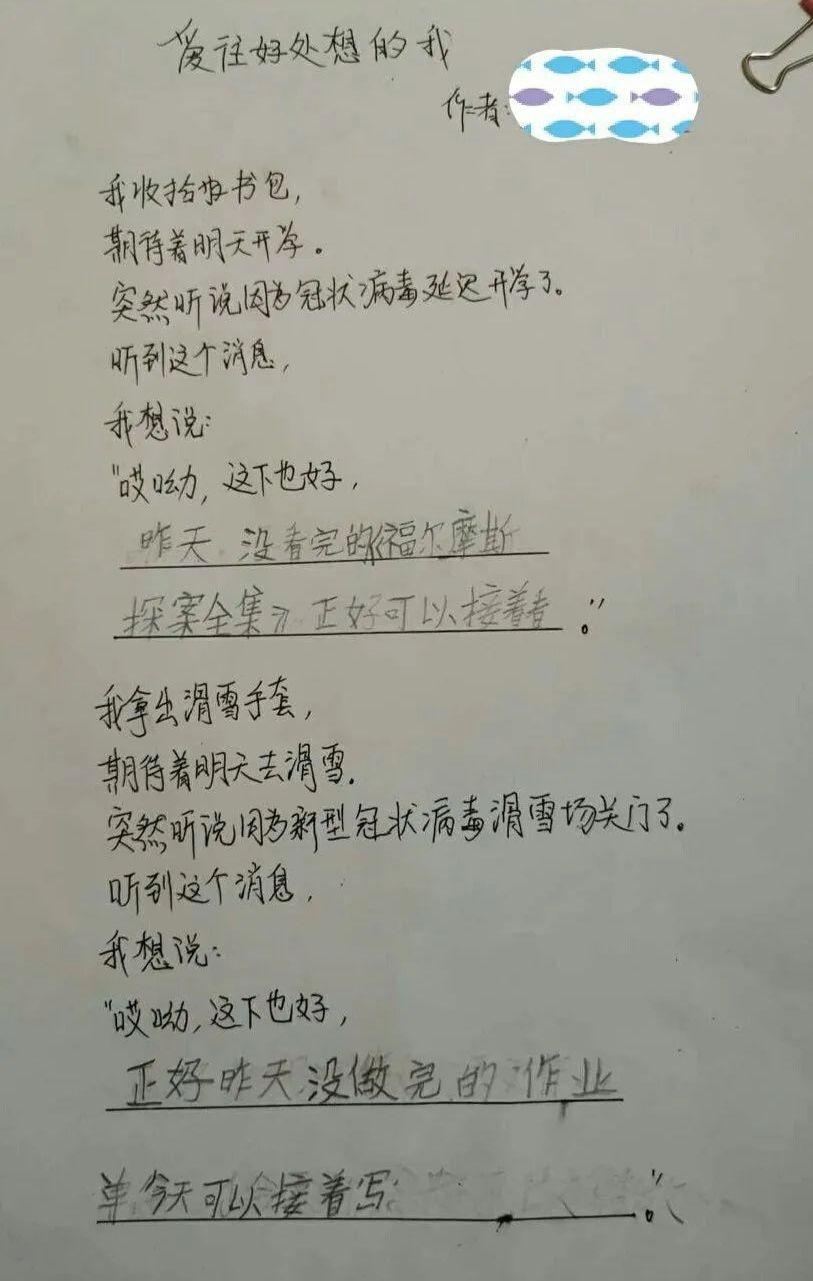 爱往好处想的我
作者:
我收拾好书包,
期待着明天开学。
突然听说因为冠状病毒延迟开学了。
听到这个消息,
我想说:
"哎呦,这下也好,
昨天没看完的《福尔摩斯
探案全集》正好可以接着看。"
我拿出滑雪手套,
期待着明天去滑雪.
突然听说因为新型冠状病毒滑雪场关门了。
听到这个消息,
我想说:
"哎呦,这下也好,
正好昨天没做完的作业
单今天可以接着写。"